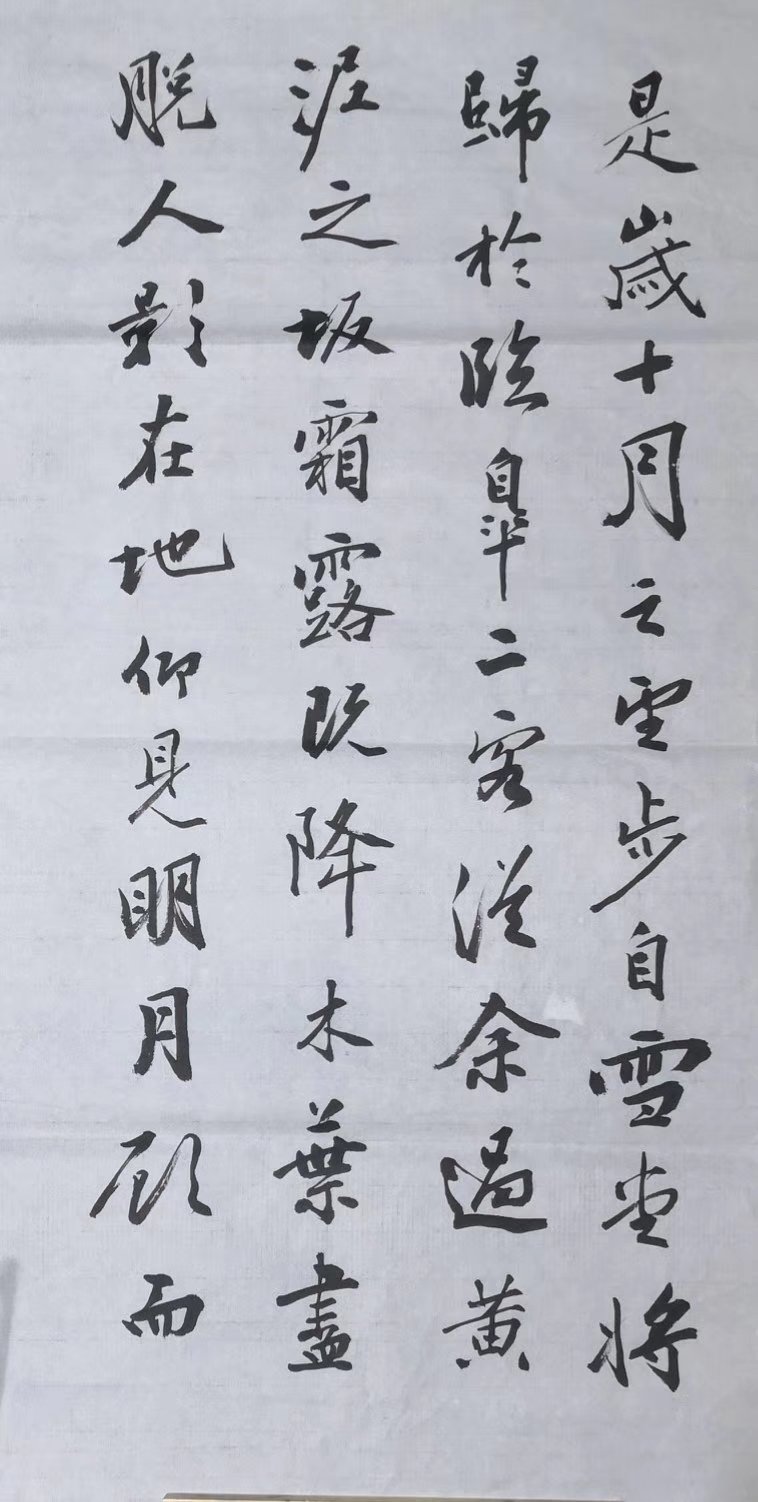 是歲十月之望步自雪堂將
歸於臨皋二客從余過黃
泥之坂霜露既降木葉盡
脫人影在地仰見明月顧而